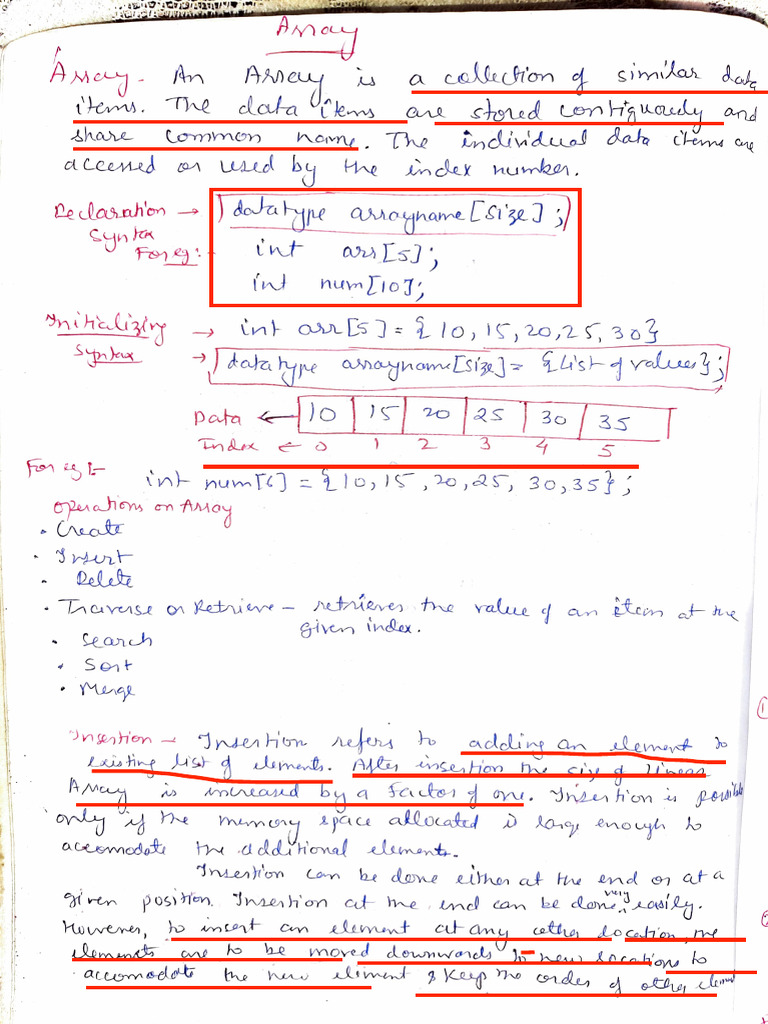 Array
Array - An Array is a collection of similar data
items. The data items are stored contiguously and
share common name. The individual data items are
accessed or used by the index number.
Declaration → datatype arrayname[size];
Syntax
For eg:- int arr[5];
int num[10];
Initializing → int arr[5] = {10, 15, 20, 25, 30}
Syntax → datatype arrayname[size] = {List of values};
Data ← 10 15 20 25 30 35
Index ← 0 1 2 3 4 5
For eg:-
int num[6] = {10, 15, 20, 25, 30, 35};
Operations on Array
• Create
• Insert
• Delete
• Traverse or Retrieve - retrieves the value of an item at the
given index.
• Search
• Sort
• Merge
Insertion → Insertion refers to adding an element to
existing list of elements. After insertion the size of linear
Array is increased by a factor of one. Insertion is possible
only if the memory space allocated is large enough to
accomodate the additional elements.
Insertion can be done either at the end or at a
given position. Insertion at the end can be done very easily.
However, to insert an element at any other location, the
elements are to be moved downwards to new locations to
accomodate the new element & keep the order of other element